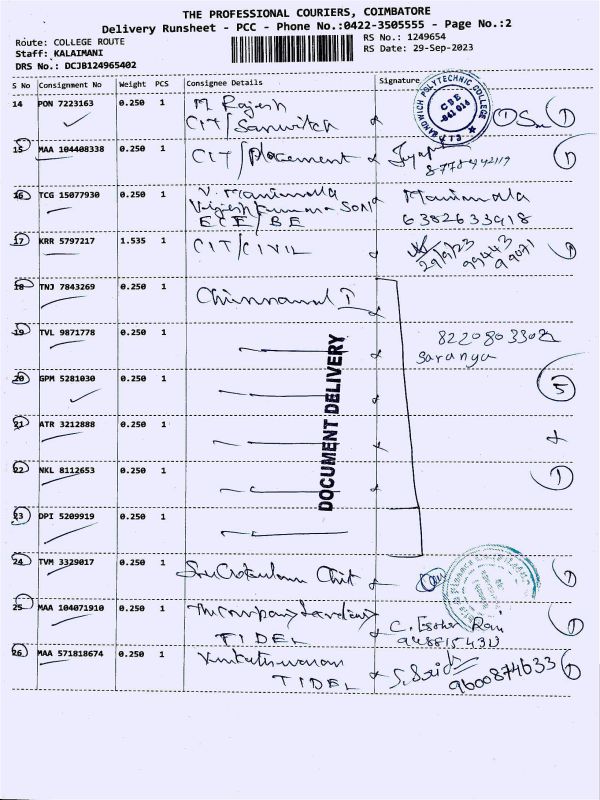 THE PROFESSIONAL COURIERS, COIMBATORE
Delivery Runsheet - PCC - Phone No.:0422-3505555 - Page No.:2
Route: COLLEGE ROUTE
Staff: KALAIMANI
DRS No.: DCJB124965402
RS No.: 1249654
RS Date: 29-Sep-2023
S No Consignment No Weight PCS Consignee Details Signature
14 PON 7223163 0.250 1 M Rajesh
CIT/Sanwitch
SANDWICH POLYTECHNIC COLLEGE
CBE
641 014
CIT
15 MAA 104408338 0.250 1 CIT/Placement
8778442117
16 TCG 15077930 0.250 1 V. Manimala Manimala
ECE/BE 6382633918
17 KRR 5797217 1.535 1 CIT/CIVIL
29/9/23 99443
99071
18 TNJ 7843269 0.250 1 Chinnamal I
19 TVL 9871778 0.250 1 8220803302
Saranya
20 GPM 5281030 0.250 1 5
21 ATR 3212888 0.250 1
22 NKL 8112653 0.250 1 1
DOCUMENT DELIVERY
23 DPI 5209919 0.250 1
24 TVM 3329017 0.250 1 Sri Gokulam Chit
25 MAA 104071910 0.250 1
TIDEL C. Esther Rani
26 MAA 571818674 0.250 1 Venkateswaran
TIDEL 9600874633